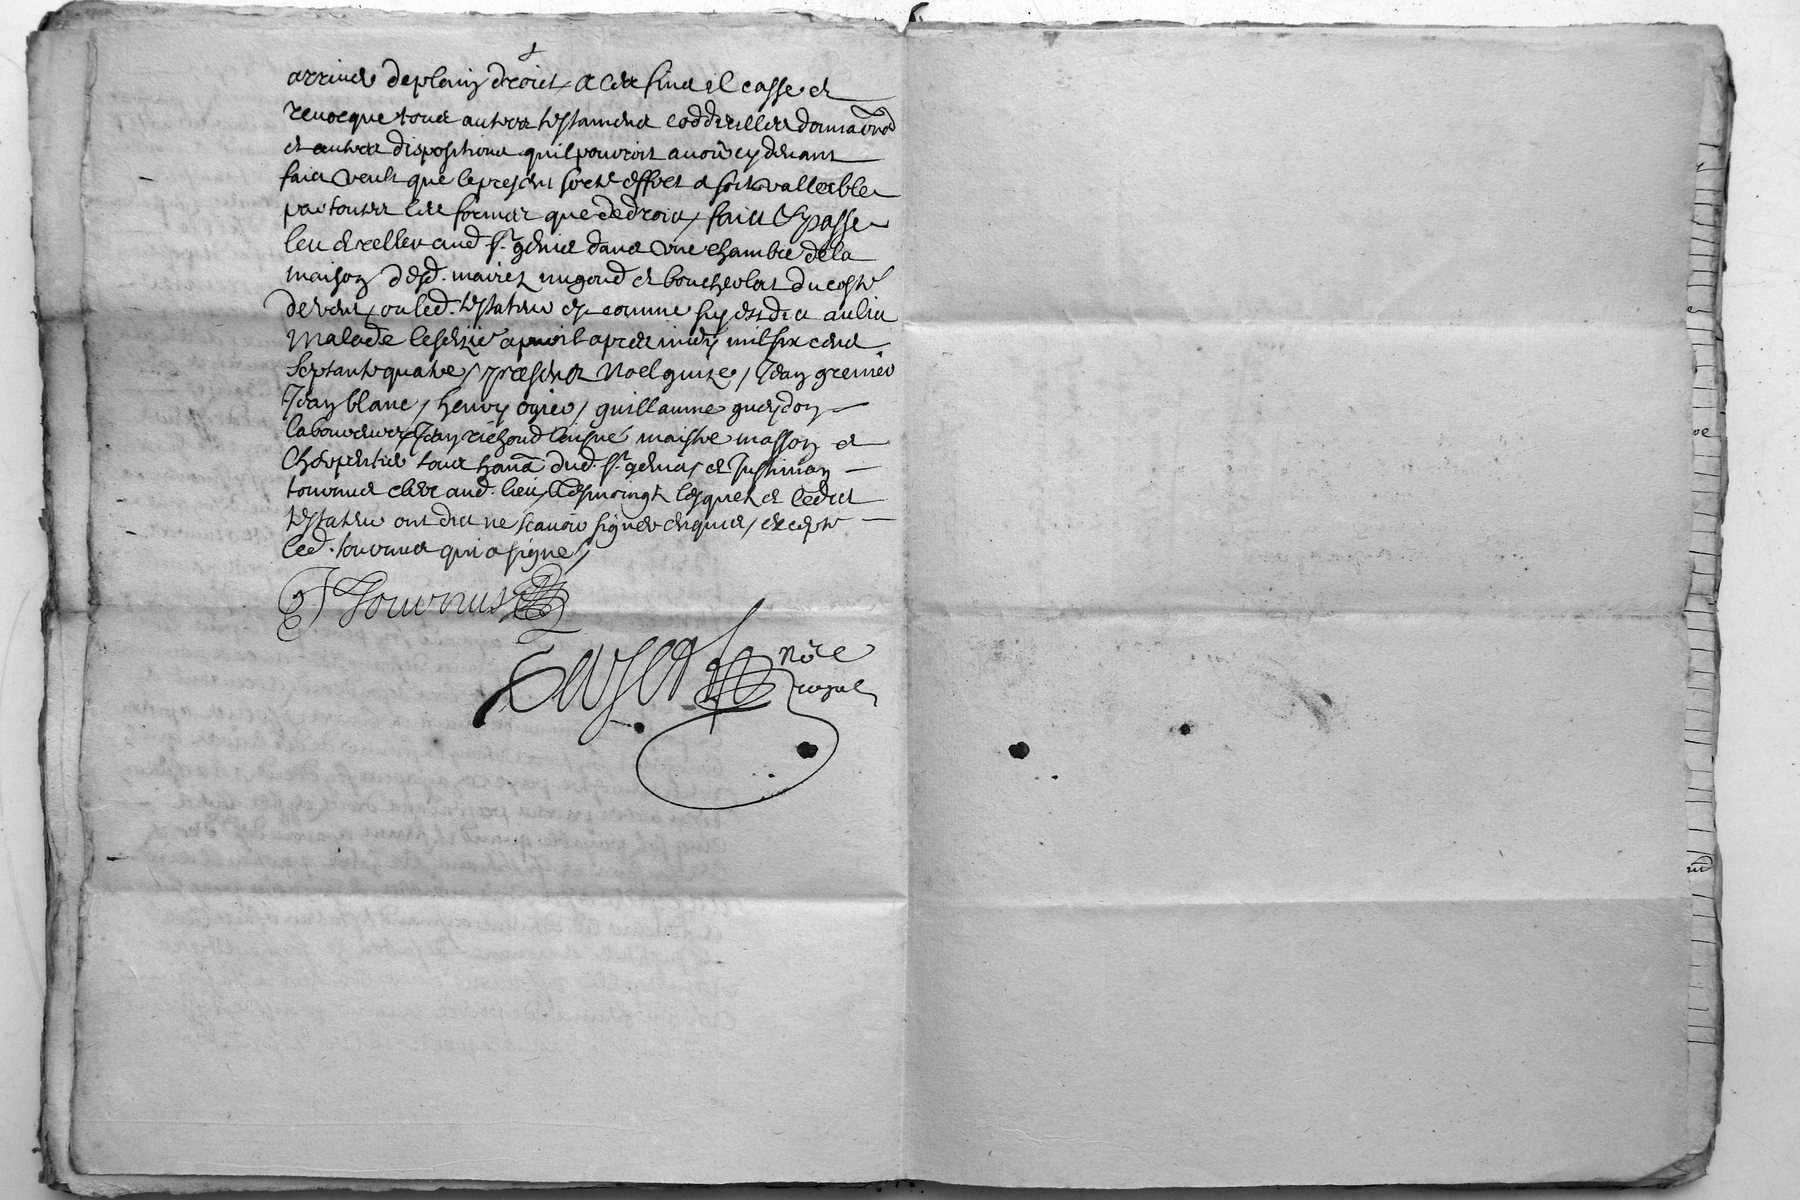 arrive de plain droict, a ces fins il casse et
revocque tous autres testamens coddicilles donnaōns
et autres dispositions quil pouvoit avoir cy devant
faict veult que le present sorte effect et soit vallable
par toutes les formes que de droict, faict & passe
leu et relleu aud. St. genis dans une chambre de la
maison desd. mairez et boucherlat du costé
de vent, ou led. testateur est comme sy est dict au lict
malade le seizie apvril apres midy mil six cens
septante quatre, presents Noel guize, Jean grenier
Jean blanc, henry ogier, guillaume gueydon
laboureurs, Jean richoud laisné maistre masson et
Charpentier tous hanā dud. St. genis et Justinian
tournus clerc aud. lieu, tesmoingt lesquelz et ledict
testateur ont dict ne scavoir signer enquis, excepte
led. tournus qui a signe,
J Tournus
Noīe
royal